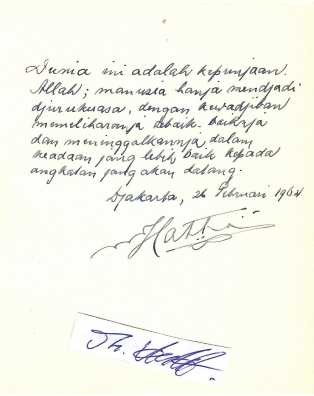 Dunia ini adalah kepunjaan
Allah; manusia hanja mendjadi
djurukuasa, dengan kewadjiban
memeliharanja sebaik-baiknja
dan meninggalkannja dalam
keadaan jang lebih baik kepada
angkatan jang akan datang.
Djakarta, 26 Februari 1964
Hatta